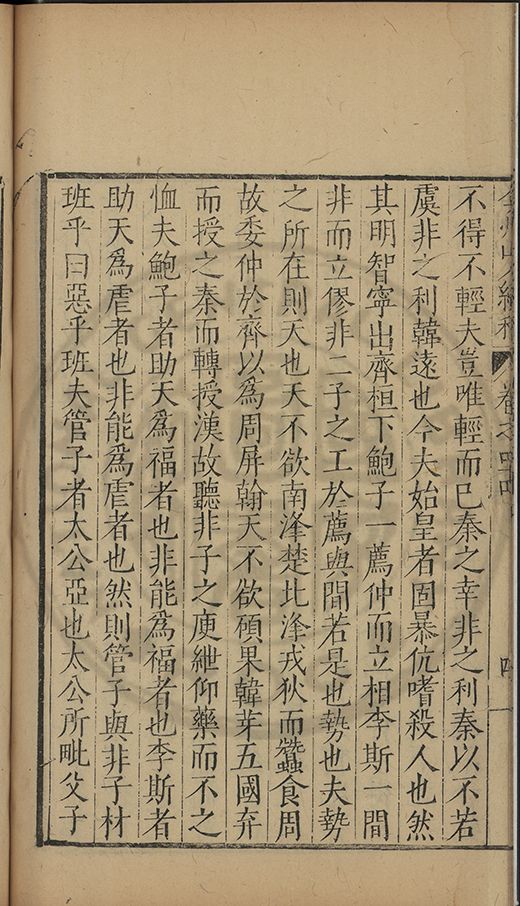 弇州山人續稿 卷之四 四
不得不輕夫豈唯輕而已秦之幸非之利秦以不若
虞非之利韓遠也今夫始皇者固暴伉嗜殺人也然
其明智寧出齊桓下鮑子一薦仲而立相李斯一間
非而立僇非二子之工於薦與間若是也勢也夫勢
之所在則天也天不欲南浲楚比浲戎狄而蠶食周
故委仲於齊以爲周屏翰天不欲碩果韓芽五國弃
而授之秦而轉授漢故聽非子之庾紲仰藥而不之
恤夫鮑子者助天爲福者也非能爲福者也李斯者
助天爲虐者也非能爲虐者也然則管子與非子材
班乎曰惡乎班夫管子者太公亞也太公所毗父子